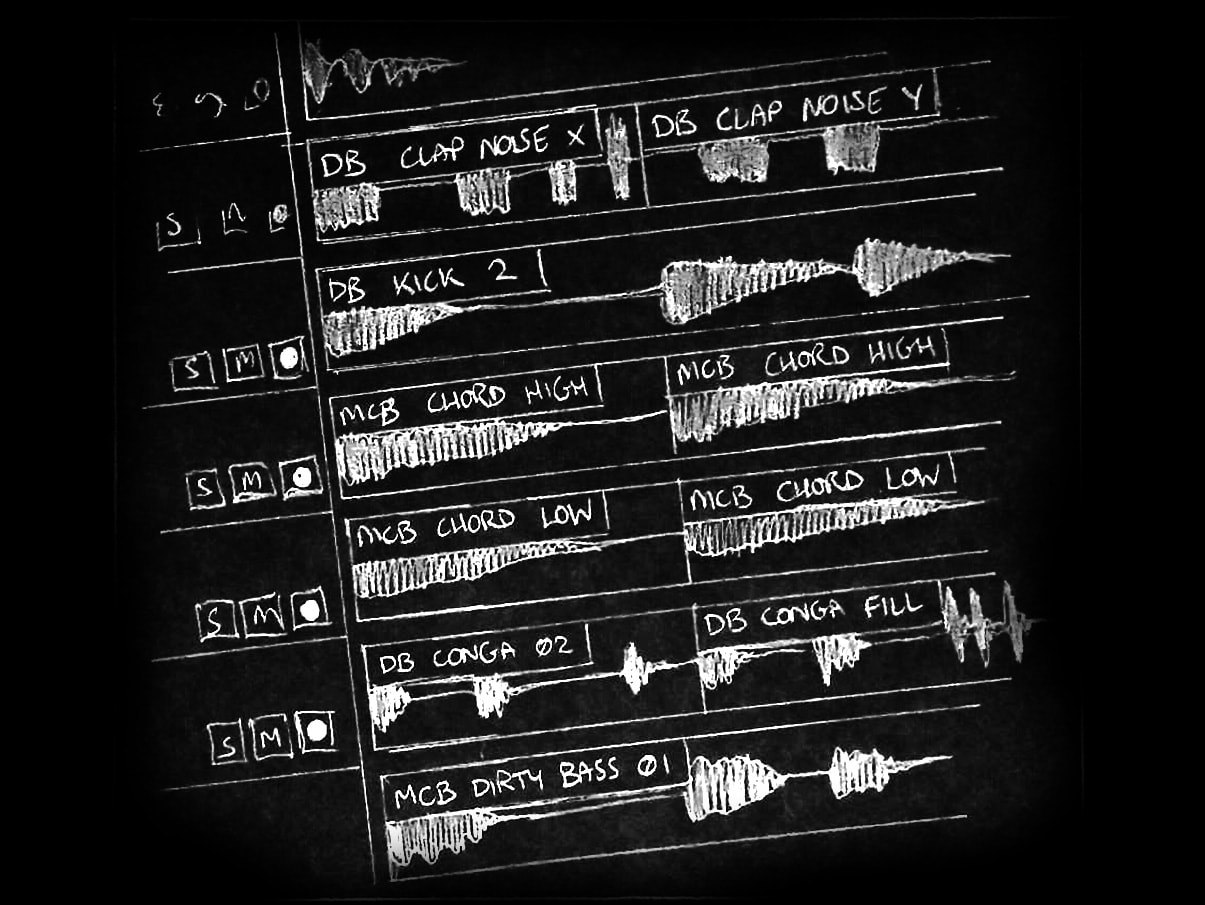 DB CLAP NOISE X DB CLAP NOISE Y
S M
DB KICK 2
S M
MCB CHORD HIGH MCB CHORD HIGH
S M
MCB CHORD LOW MCB CHORD LOW
S M
DB CONGA 02 DB CONGA FILL
S M
MCB DIRTY BASS 01